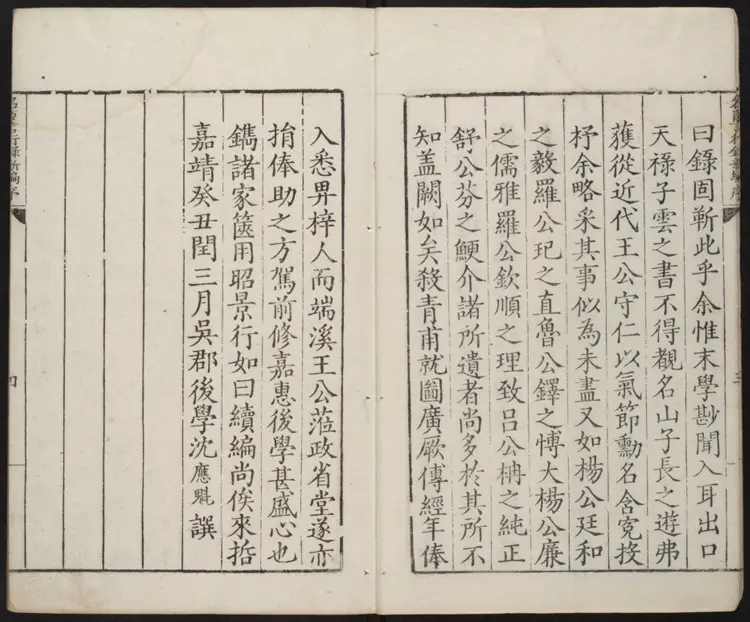 曰錄固靳此乎余惟末學尠聞入耳出口
天祿子雲之書不得覩名山子長之遊弗
獲從近代王公守仁以氣節勳名舍寃投
杼余略采其事似為未盡又如楊公廷和
之毅羅公玘之直魯公鐸之愽大楊公廉
之儒雅羅公欽順之理致吕公柟之純正
舒公芬之鯁介諸所遺者尚多於其所不
知盖闕如矣殺青甫就圖廣厥傳經年俸
入悉畀梓人而端溪王公蒞政省堂遂亦
捐俸助之方駕前修嘉惠後學甚盛心也
鐫諸家篋用昭景行如曰續編尚俟來哲
嘉靖癸丑閏三月吳郡後學沈應魁譔